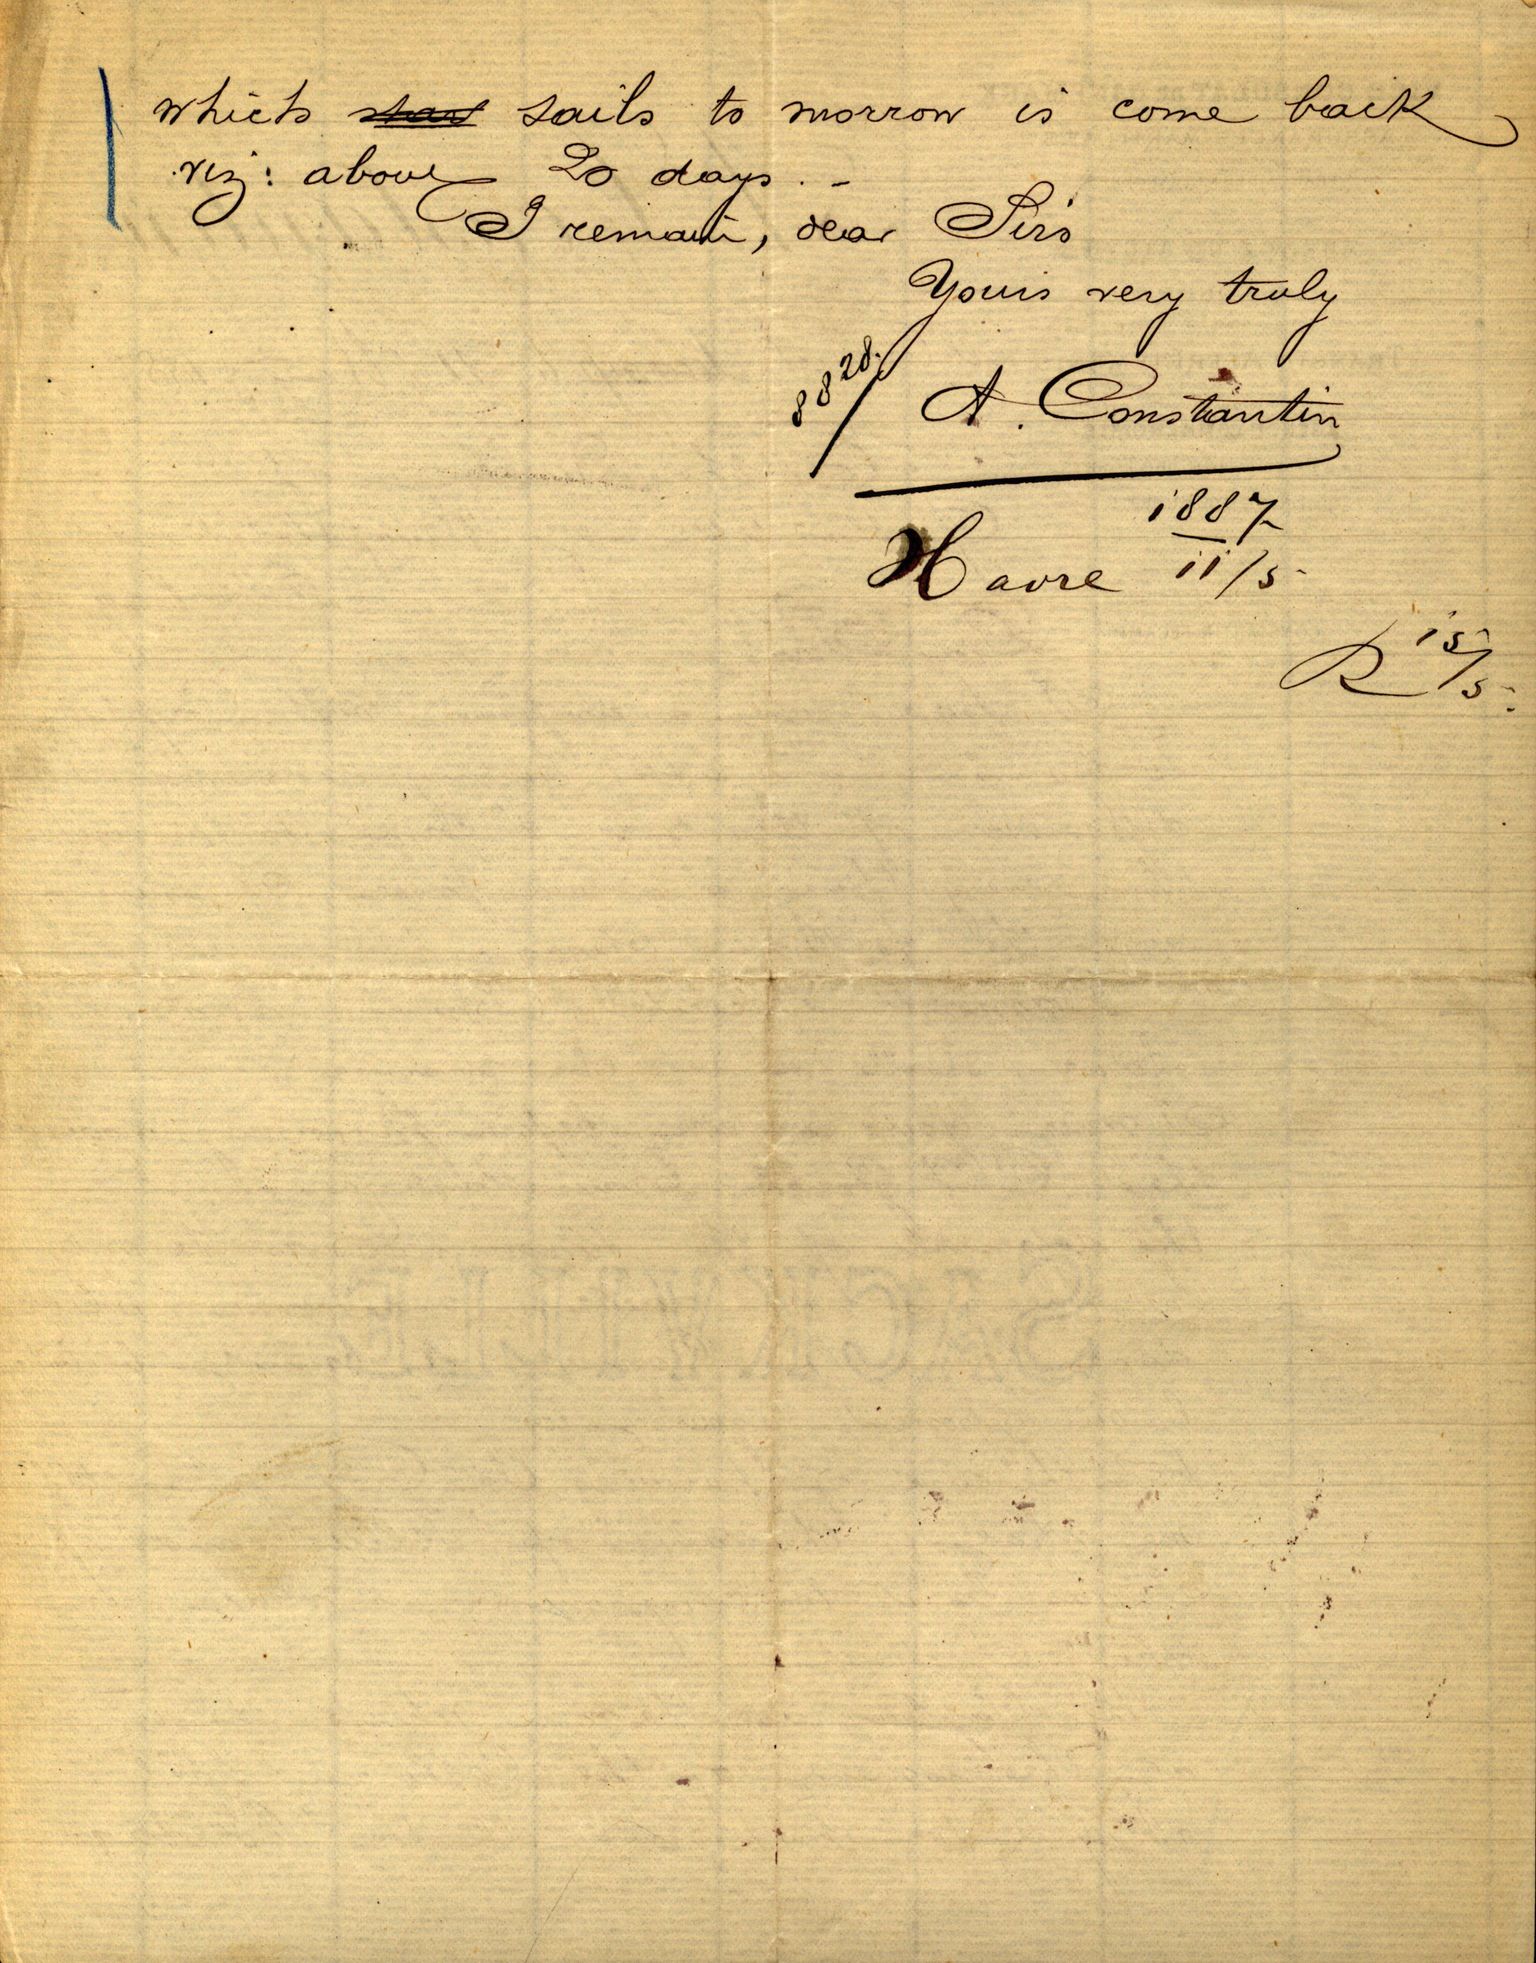 which sails to morrow is come back
viz: above 20 days. -
I remain, dear Sirs
Yours very truly
8828.
A. Constantin
1887
Havre 11/5-
R 15/5-
SACKVILLE